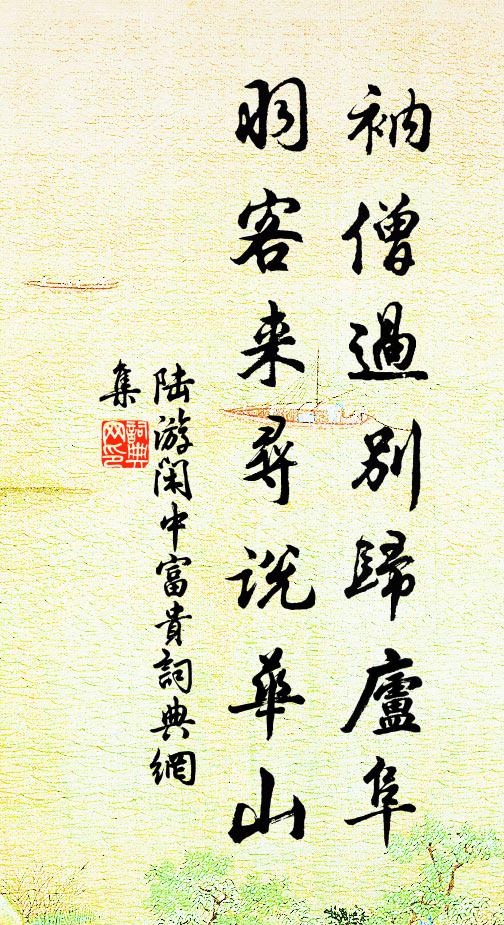 衲僧過別歸廬阜
羽客来尋说華山
陆游闲中富貴詞典網
集
詞典
网印